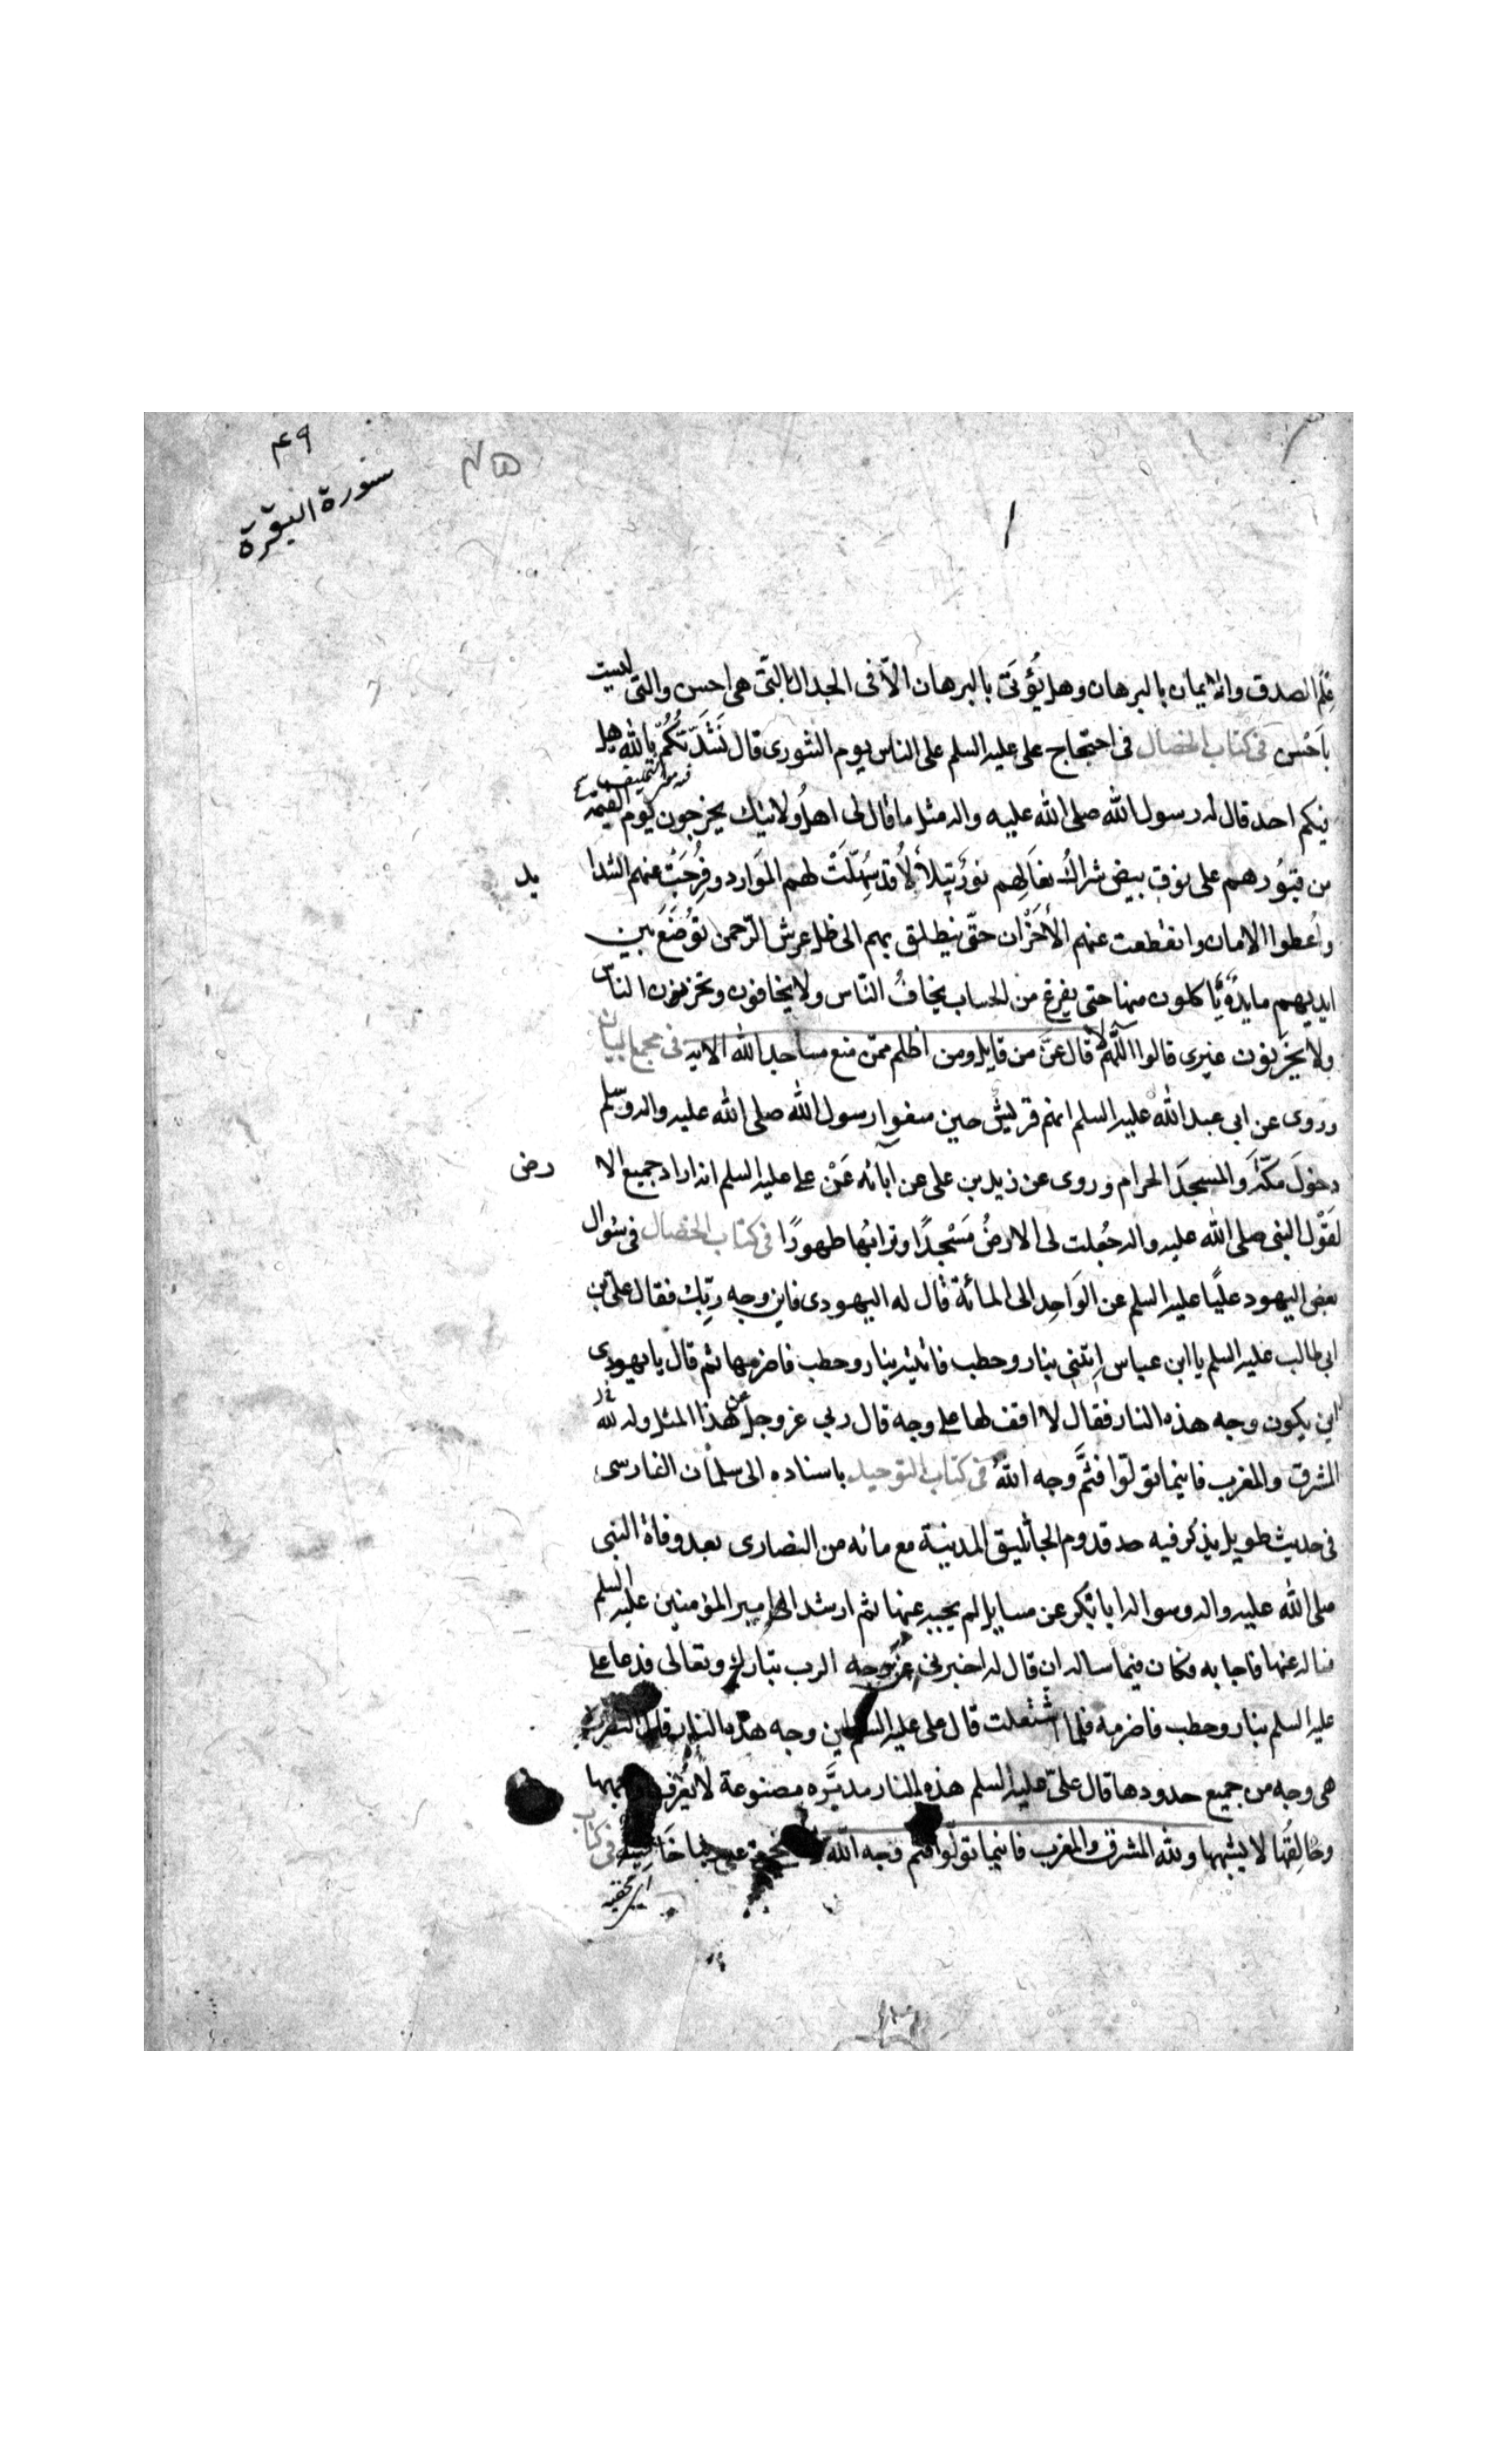 ۴۹
سورة البقرة
علم الصدق والايمان بالبرهان وهل يؤتى بالبرهان الّا فى الجدال بالتّى هى احسن والتى ليست
باَحْسن فى كتاب الخصال فى احتجاج على عليه السلم على الناس يوم الشورى قال نَشَدْتُكُمْ بالله هل
فيكم احد قال له رسول الله صلى الله عليه واله مثل ما قال لى اهل ولايتك يخرجون يوم القيمة
من قبُورهم على نوق بيض شراك نعالهم نور يتلأْلأُ قد سُهّلَتْ لهم الموارد وفُرِجَتْ عنهم الشدا
يد
واُعطوا الامان وانقطعت عنهم الأَحْزان حتّى ينطلق بهم الى ظل عرش الرّحمن تُوْضَعَ بين
ايديهم مايدة يأكلون منها حتى يفرغ من الحساب يخافُ النّاس ولا يخافون وتحزنون الناس
ولا يحْزَنون غيرى قالوا اللّهمّ لا قال عزّ من قايل ومن اظلم ممّن منع مساجد الله الايه فى مجمع البيان
وروى عن ابى عبد الله عليه السلم انهم قريش حين منعوا رسول الله صلى الله عليه واله وسلم
دخولَ مكّةَ والمسجدَ الحرام وروى عن زيد بن على عن ابائه عَنْ على عليه السلم انه اراد جميع الا
رض
لقَوْل النبى صلى الله عليه واله جُعلت لى الارضُ مَسْجدًا وترابُها طهورًا فى كتاب الخصال فى سُوال
بعض اليهود عليًا عليه السلم عن الوَاحِد الى المائة قال له اليهودى فاين وجه ربّك فقال علىّ بن
ابى طالب عليه السلم يا ابن عباس اِئتنى بنار وحطب فاتيته بنار وحطب فاضرمها ثم قال يا يهودى
اين يكون وجه هذه النار فقال لا اقف لها على وجه قال ربى عزوجل عن هذا المثل وله لله
المشرق والمغرب فاينما تولّوا فثمَّ وجه اللهُ فى كتاب التوحيد باسناده الى سلمان الفارسى
فى حديث طويل يذكر فيه حد قدوم الجاثليق المدينة مع مائه من النصارى بعد وفاة النبى
صلى الله عليه واله وسواله ابا بكر عن مسايل لم يجبه عنها ثم ارشد الى امير المؤمنين عليه السلم
فساله عنها فاجابه فكان فيما ساله ان قال له اخبرنى عن وجه الرب تبارك وتعالى فدعا على
عليه السلم بنار وحطب فاضرمه فلما اشتعلت قال على عليه السلم اين وجه هذه النار قال النصرانى
هى وجه من جميع حدودها قال علىّ عليه السلم هذه النار مدبَّره مصنوعة لا يُعْرف وجهها
وخالقُها لا يشبهها ولله المشرق والمغرب فاينما تولّوا فثم وجه الله خَافيةٌ فى كتاب